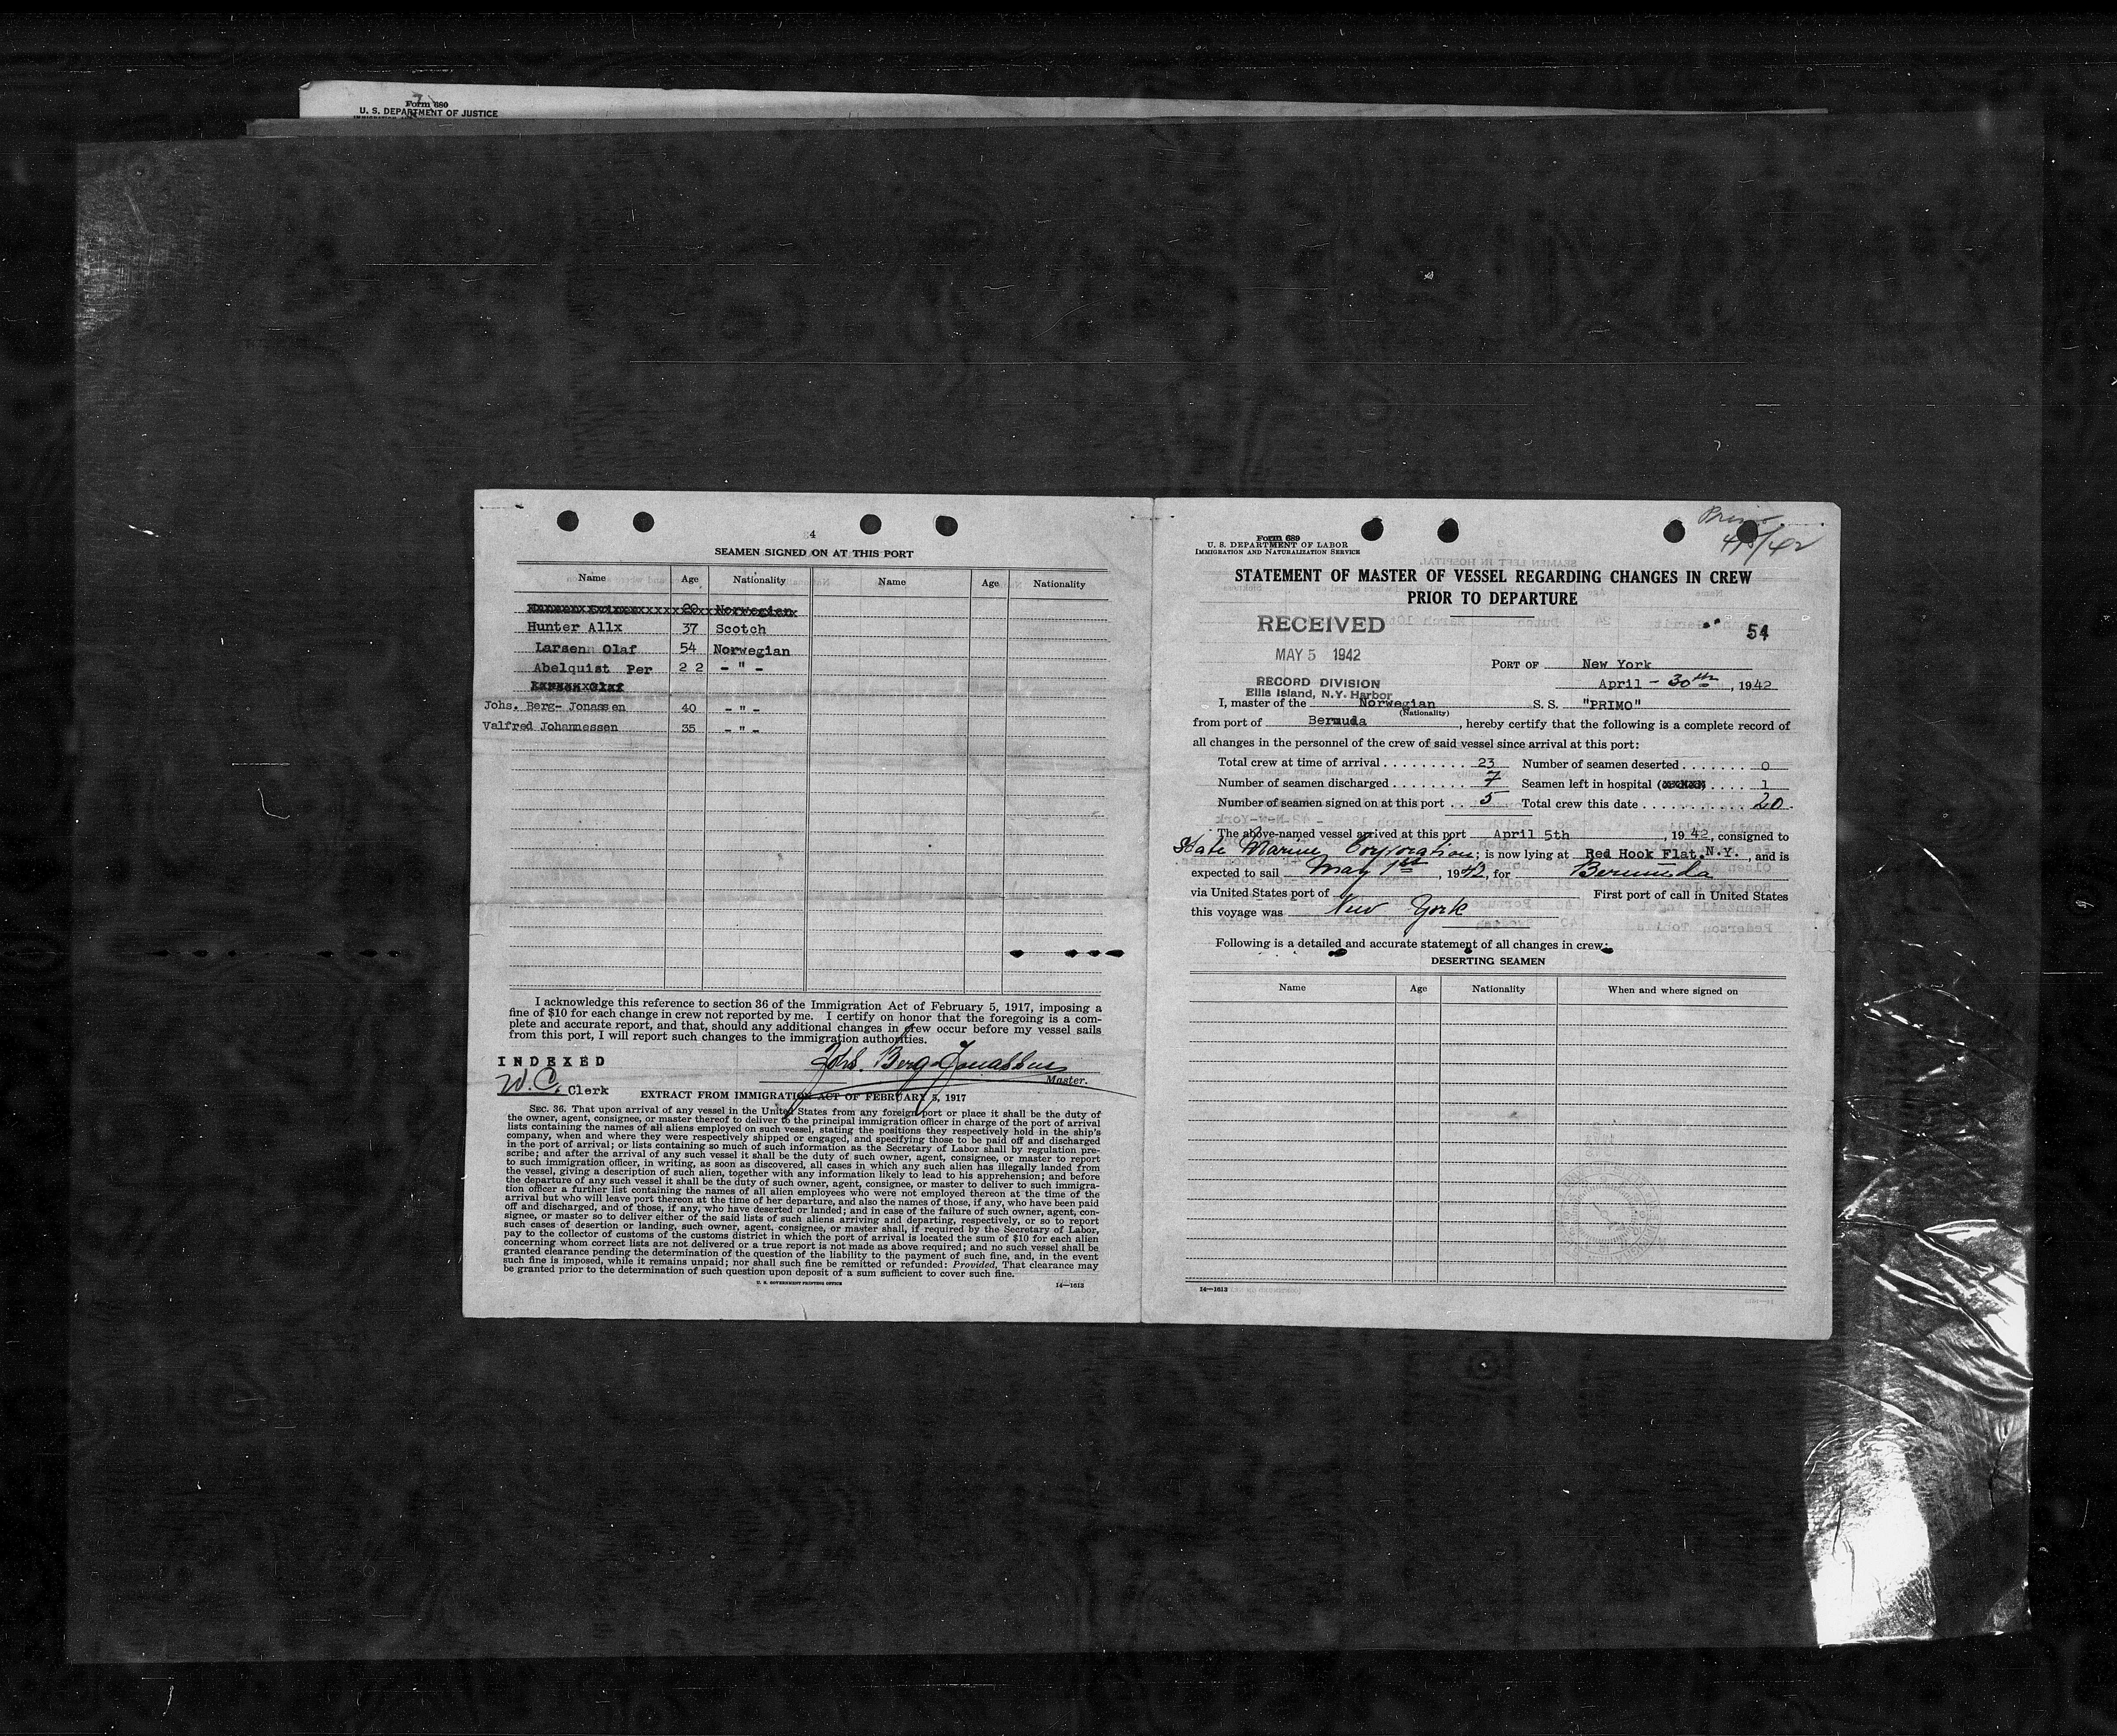 Form 680
U. S. DEPARTMENT OF JUSTICE
4
SEAMEN SIGNED ON AT THIS PORT
Name Age Nationality Name Age Nationality
Norwegian
Hunter Allx 37 Scotch
Larsen Olaf 54 Norwegian
Abelquist Per 2 2 - " -
Johs. Berg- Jonassen 40 - " -
Valfred Johannessen 35 - " -
I acknowledge this reference to section 36 of the Immigration Act of February 5, 1917, imposing a
fine of $10 for each change in crew not reported by me. I certify on honor that the foregoing is a com-
plete and accurate report, and that, should any additional changes in crew occur before my vessel sails
from this port, I will report such changes to the immigration authorities.
INDEXED
Johs. Berg-Jonassen
Master.
W. C. Clerk
EXTRACT FROM IMMIGRATION ACT OF FEBRUARY 5, 1917
SEC. 36. That upon arrival of any vessel in the United States from any foreign port or place it shall be the duty of
the owner, agent, consignee, or master thereof to deliver to the principal immigration officer in charge of the port of arrival
lists containing the names of all aliens employed on such vessel, stating the positions they respectively hold in the ship's
company, when and where they were respectively shipped or engaged, and specifying those to be paid off and discharged
in the port of arrival; or lists containing so much of such information as the Secretary of Labor shall by regulation pre-
scribe; and after the arrival of any such vessel it shall be the duty of such owner, agent, consignee, or master to report
to such immigration officer, in writing, as soon as discovered, all cases in which any such alien has illegally landed from
the vessel, giving a description of such alien, together with any information likely to lead to his apprehension; and before
the departure of any such vessel it shall be the duty of such owner, agent, consignee, or master to deliver to such immigra-
tion officer a further list containing the names of all alien employees who were not employed thereon at the time of the
arrival but who will leave port thereon at the time of her departure, and also the names of those, if any, who have been paid
off and discharged, and of those, if any, who have deserted or landed; and in case of the failure of such owner, agent, con-
signee, or master so to deliver either of the said lists of such aliens arriving and departing, respectively, or so to report
such cases of desertion or landing, such owner, agent, consignee, or master shall, if required by the Secretary of Labor,
pay to the collector of customs of the customs district in which the port of arrival is located the sum of $10 for each alien
concerning whom correct lists are not delivered or a true report is not made as above required; and no such vessel shall be
granted clearance pending the determination of the question of the liability to the payment of such fine, and, in the event
such fine is imposed, while it remains unpaid; nor shall such fine be remitted or refunded: Provided, That clearance may
be granted prior to the determination of such question upon deposit of a sum sufficient to cover such fine.
U. S. GOVERNMENT PRINTING OFFICE 14—1613
Primo
4/5/42
Form 689
U. S. DEPARTMENT OF LABOR
IMMIGRATION AND NATURALIZATION SERVICE
STATEMENT OF MASTER OF VESSEL REGARDING CHANGES IN CREW
PRIOR TO DEPARTURE
RECEIVED
MAY 5 1942
RECORD DIVISION
Ellis Island, N.Y. Harbor
54
PORT OF New York
April - 30th, 1942
I, master of the Norwegian S. S. "PRIMO"
(Nationality)
from port of Bermuda, hereby certify that the following is a complete record of
all changes in the personnel of the crew of said vessel since arrival at this port:
Total crew at time of arrival . . . . . . . . . 23 Number of seamen deserted . . . . . . . 0
Number of seamen discharged . . . . . . . . 7 Seamen left in hospital ( . . . . . 1
Number of seamen signed on at this port . . 5 Total crew this date . . . . . . . . . . . 20.
The above-named vessel arrived at this port April 5th, 1942, consigned to
State Marine Corporation; is now lying at Red Hook Flat. N.Y., and is
expected to sail May 1st, 1942, for Bermuda
via United States port of First port of call in United States
this voyage was New York
Following is a detailed and accurate statement of all changes in crew:
DESERTING SEAMEN
Name Age Nationality When and where signed on
14—1613